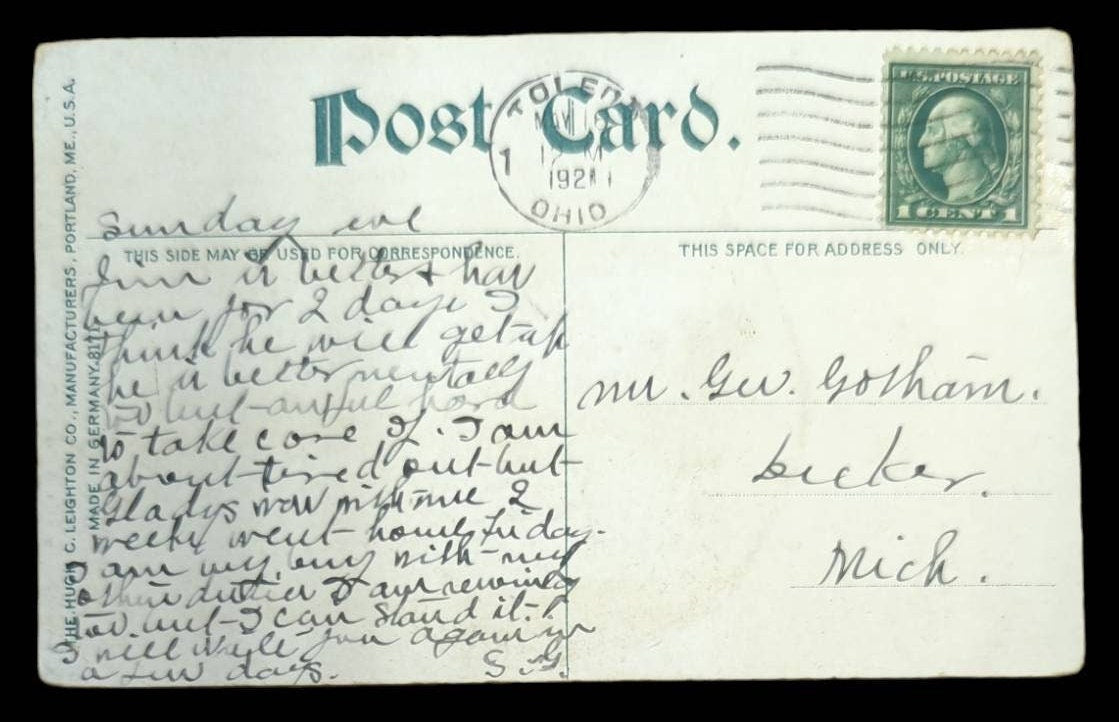 THE HUGH C. LEIGHTON CO., MANUFACTURERS, PORTLAND, ME., U.S.A.
MADE IN GERMANY.
Post Card.
TOLEDO
NOV
1
192
OHIO
U.S. POSTAGE
1 CENT 1
Sunday eve
THIS SIDE MAY BE USED FOR CORRESPONDENCE.
THIS SPACE FOR ADDRESS ONLY.
Jim is better & has
been for 2 days I
think he will get up
he is better mentally
too but awful hard
to take care of. I am
about tired out but
Gladys was with me 2
weeks went home Friday.
I am very busy with my
other duties I am sewing
too but I can stand it. I
will write you again in
a few days. S.G.
Mr. Geo. Gotham.
Decker.
Mich.